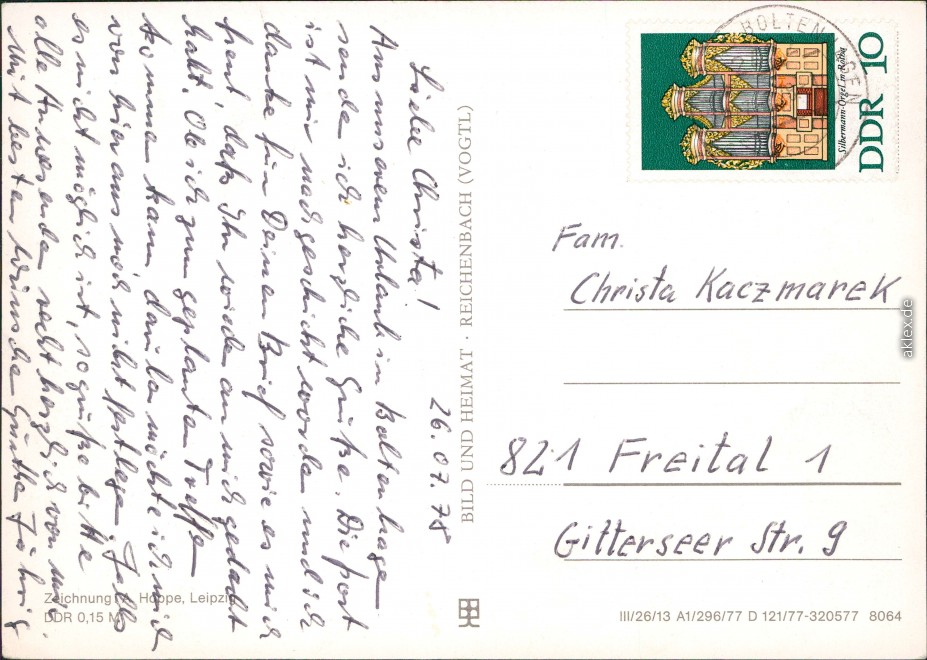 26.07.78
Liebe Christa!
Aus unserem Urlaub in Boltenhagen
sende ich herzliche Grüße. Die Post
ist mir nachgeschickt worden und ich
danke für Deinen Brief sowie es mich
freut, daß Ihr wieder an mich gedacht
habt. Ob ich zum geplanten Treffen
kommen kann, darüber möchte ich mich
von hier aus noch nicht festlegen. Falls
es nicht möglich ist, so grüße bitte
alle Anwesenden recht herzlich von mir.
Mit besten Wünschen Günther
Zeichnung: A. Hoppe, Leipzig
DDR 0,15 M
BILD UND HEIMAT · REICHENBACH (VOGTL)
BOLTENHAGEN
Silbermann-Orgel in Rötha
DDR 10
Fam.
Christa Kaczmarek
821 Freital 1
Gitterseer Str. 9
III/26/13 A1/296/77 D 121/77-320577 8064
aklex.de